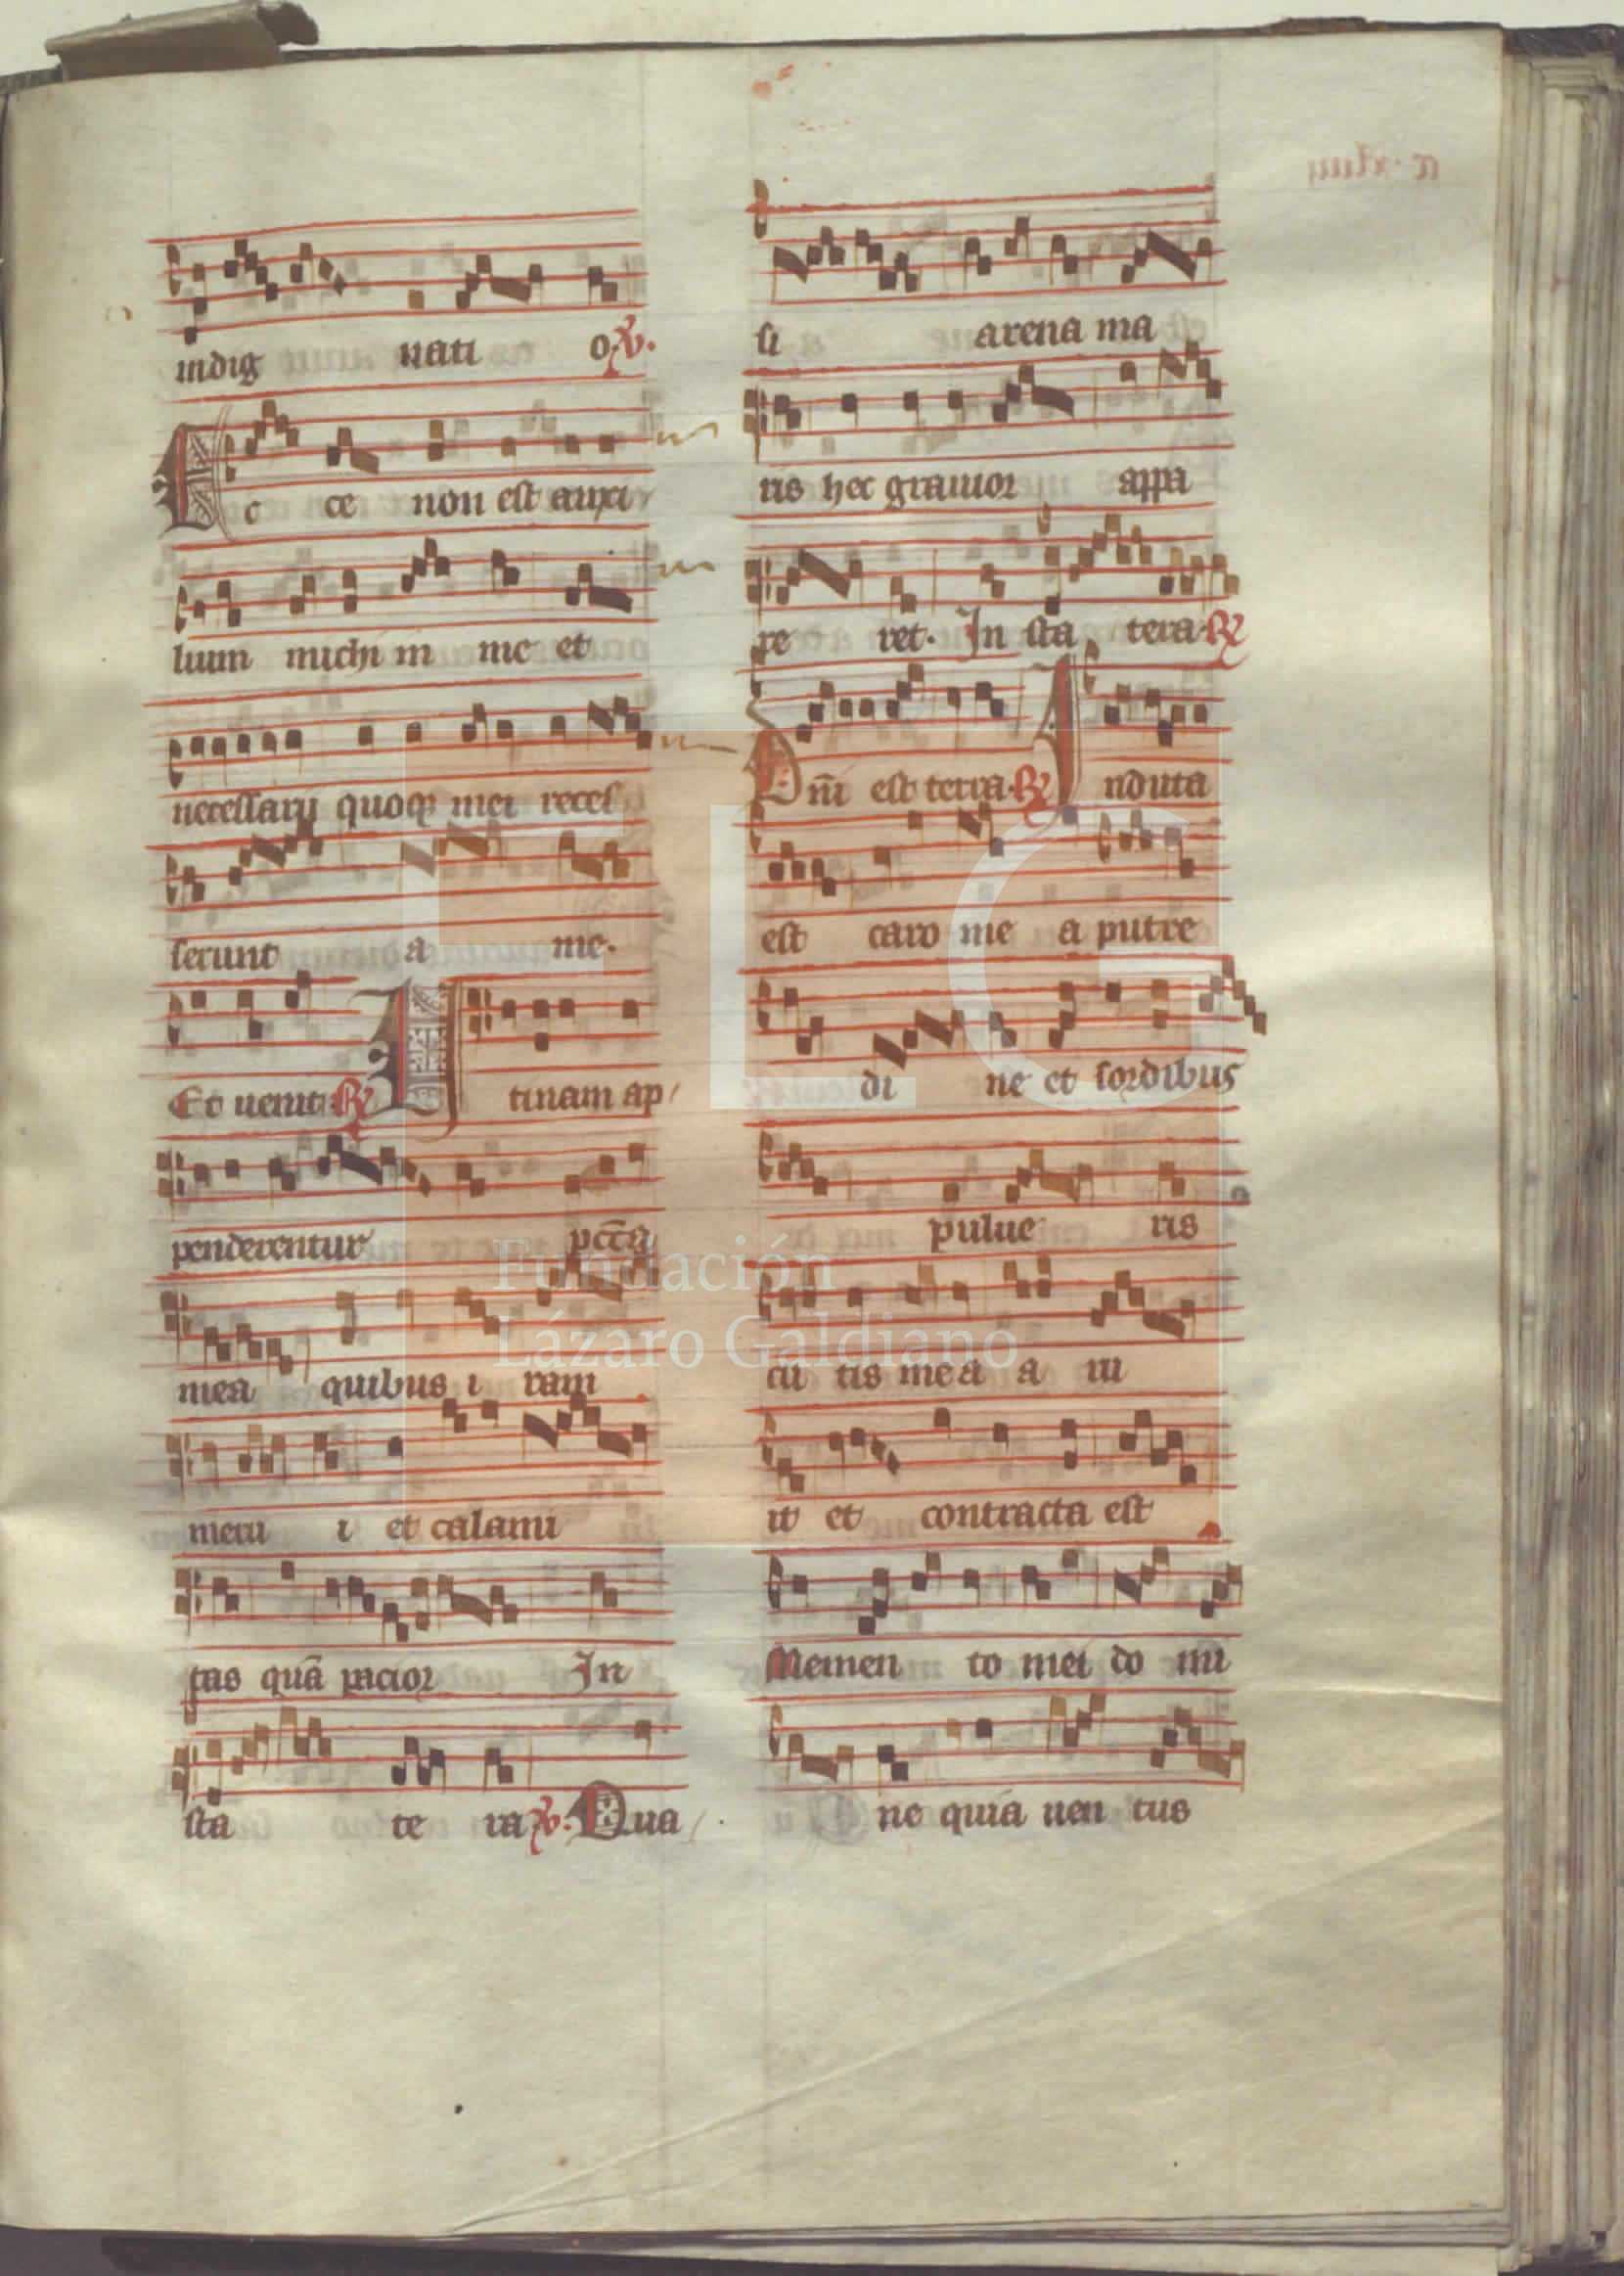 indig nati o ℣.
Ecce non est auxi
lium michi in me et
necessarii quoq; mei reces
serunt a me.
Et venit ℟ Utinam ap
penderentur pcc̄a
mea quibus i ram
merui et calami
tas quā pacior In
sta te ra ℣. Qua
si arena ma
ris hec gravior appa
re ret. In sta tera ℟
Dn̄i est terra ℟ Induta
est caro me a putre
di ne et sordibus
pulve ris
cu tis mea a ru
it et contracta est
Memen to mei do mi
ne quia ven tus
Fundación
Lázaro Galdiano
FLG